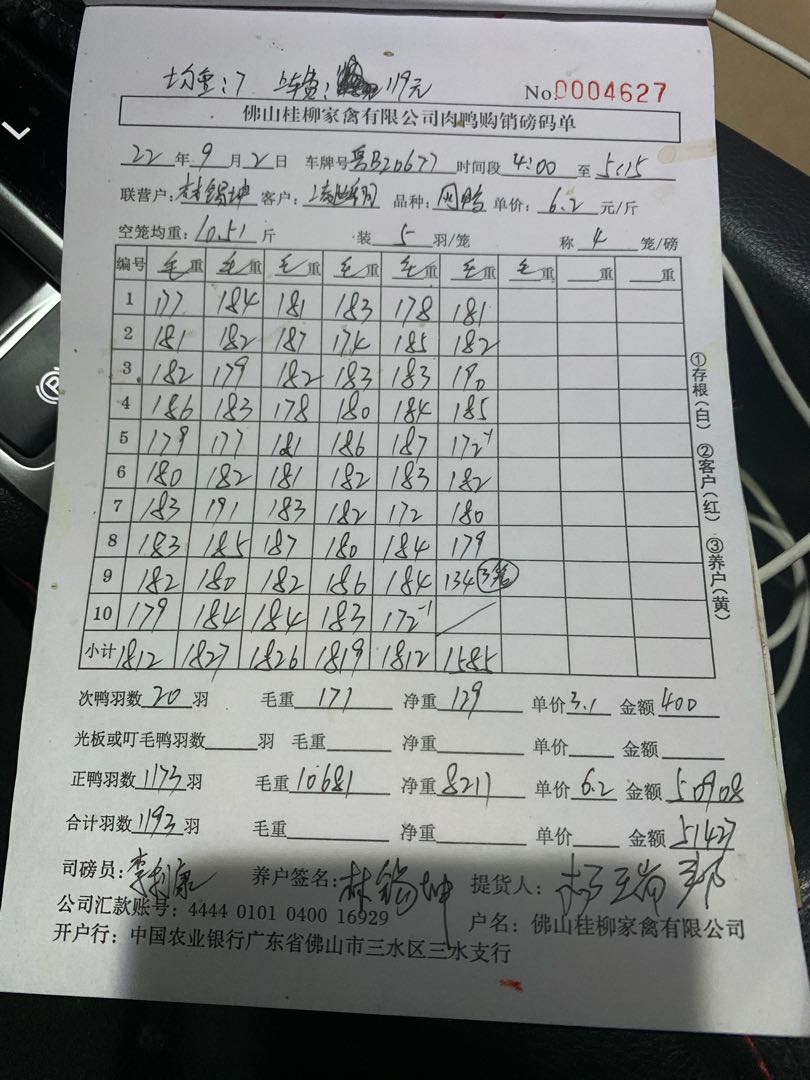 均重：7 上车费： 119元 No.0004627
佛山桂柳家禽有限公司肉鸭购销磅码单
22 年 9 月 2 日 车牌号 粤B20677 时间段 4:00 至 5:15
联营户：林锡坤 客户： 品种： 单价：6.2 元/斤
空笼均重：10.51 斤 装 5 羽/笼 称 4 笼/磅
编号 毛重 毛重 毛重 毛重 毛重 毛重 毛重 重 重
1 177 184 181 183 178 181
2 181 182 187 174 185 182
3 182 179 182 183 183 190
4 186 183 178 180 184 185
5 179 177 181 186 187 172⁻¹
6 180 182 181 182 183 182
7 183 191 183 182 172 180
8 183 185 187 180 184 179
9 182 180 182 186 184 134 3笼
10 179 184 184 183 172⁻¹
小计 1812 1827 1826 1819 1812 1585
次鸭羽数 20 羽 毛重 171 净重 129 单价 3.1 金额 400
光板或叮毛鸭羽数 羽 毛重 净重 单价 金额
正鸭羽数 1173 羽 毛重 10681 净重 8211 单价 6.2 金额 50908
合计羽数 1193 羽 毛重 净重 单价 金额 51427
司磅员：李利康 养户签名：林锡坤 提货人：
公司汇款账号：4444 0101 0400 16929 户名：佛山桂柳家禽有限公司
开户行：中国农业银行广东省佛山市三水区三水支行
①存根（白） ②客户（红） ③养户（黄）